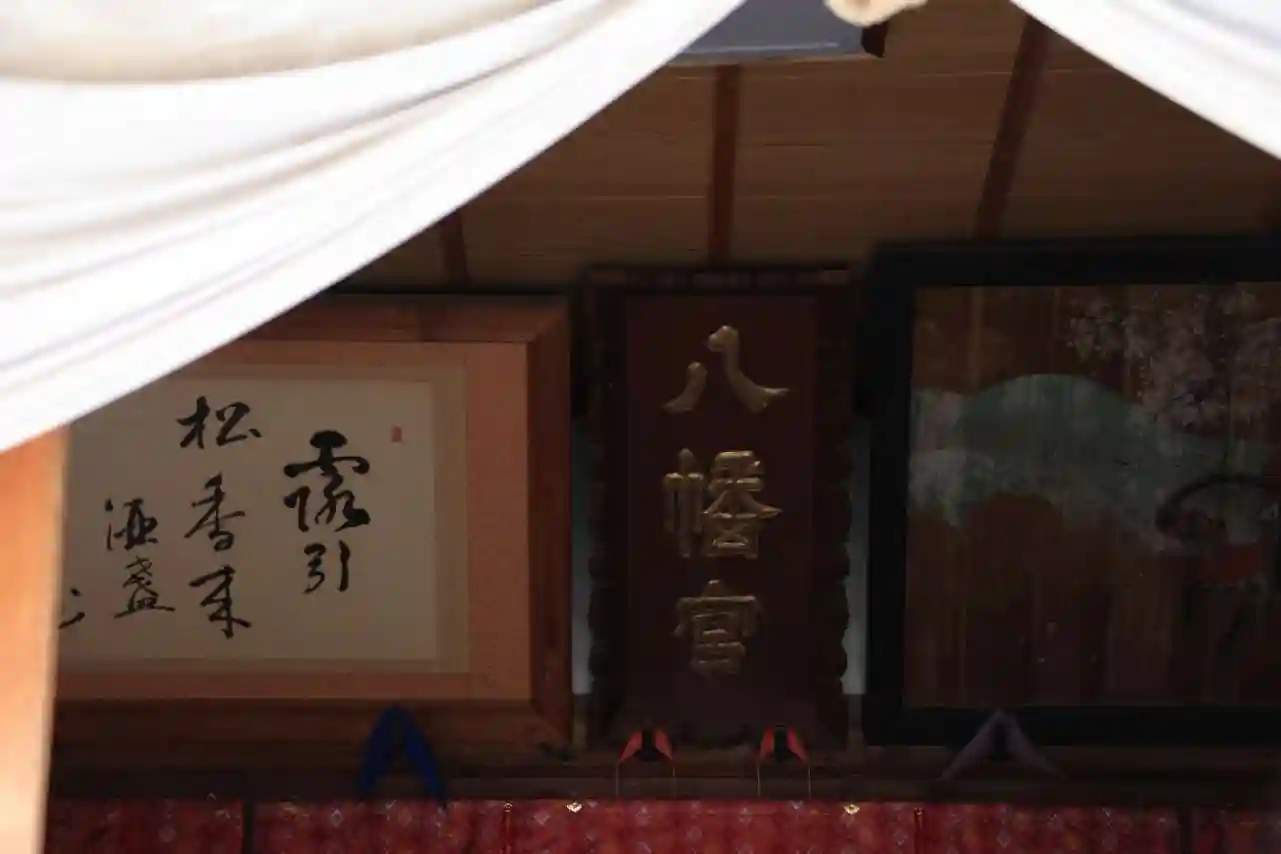 八幡宮
露引
松香来
酒盞